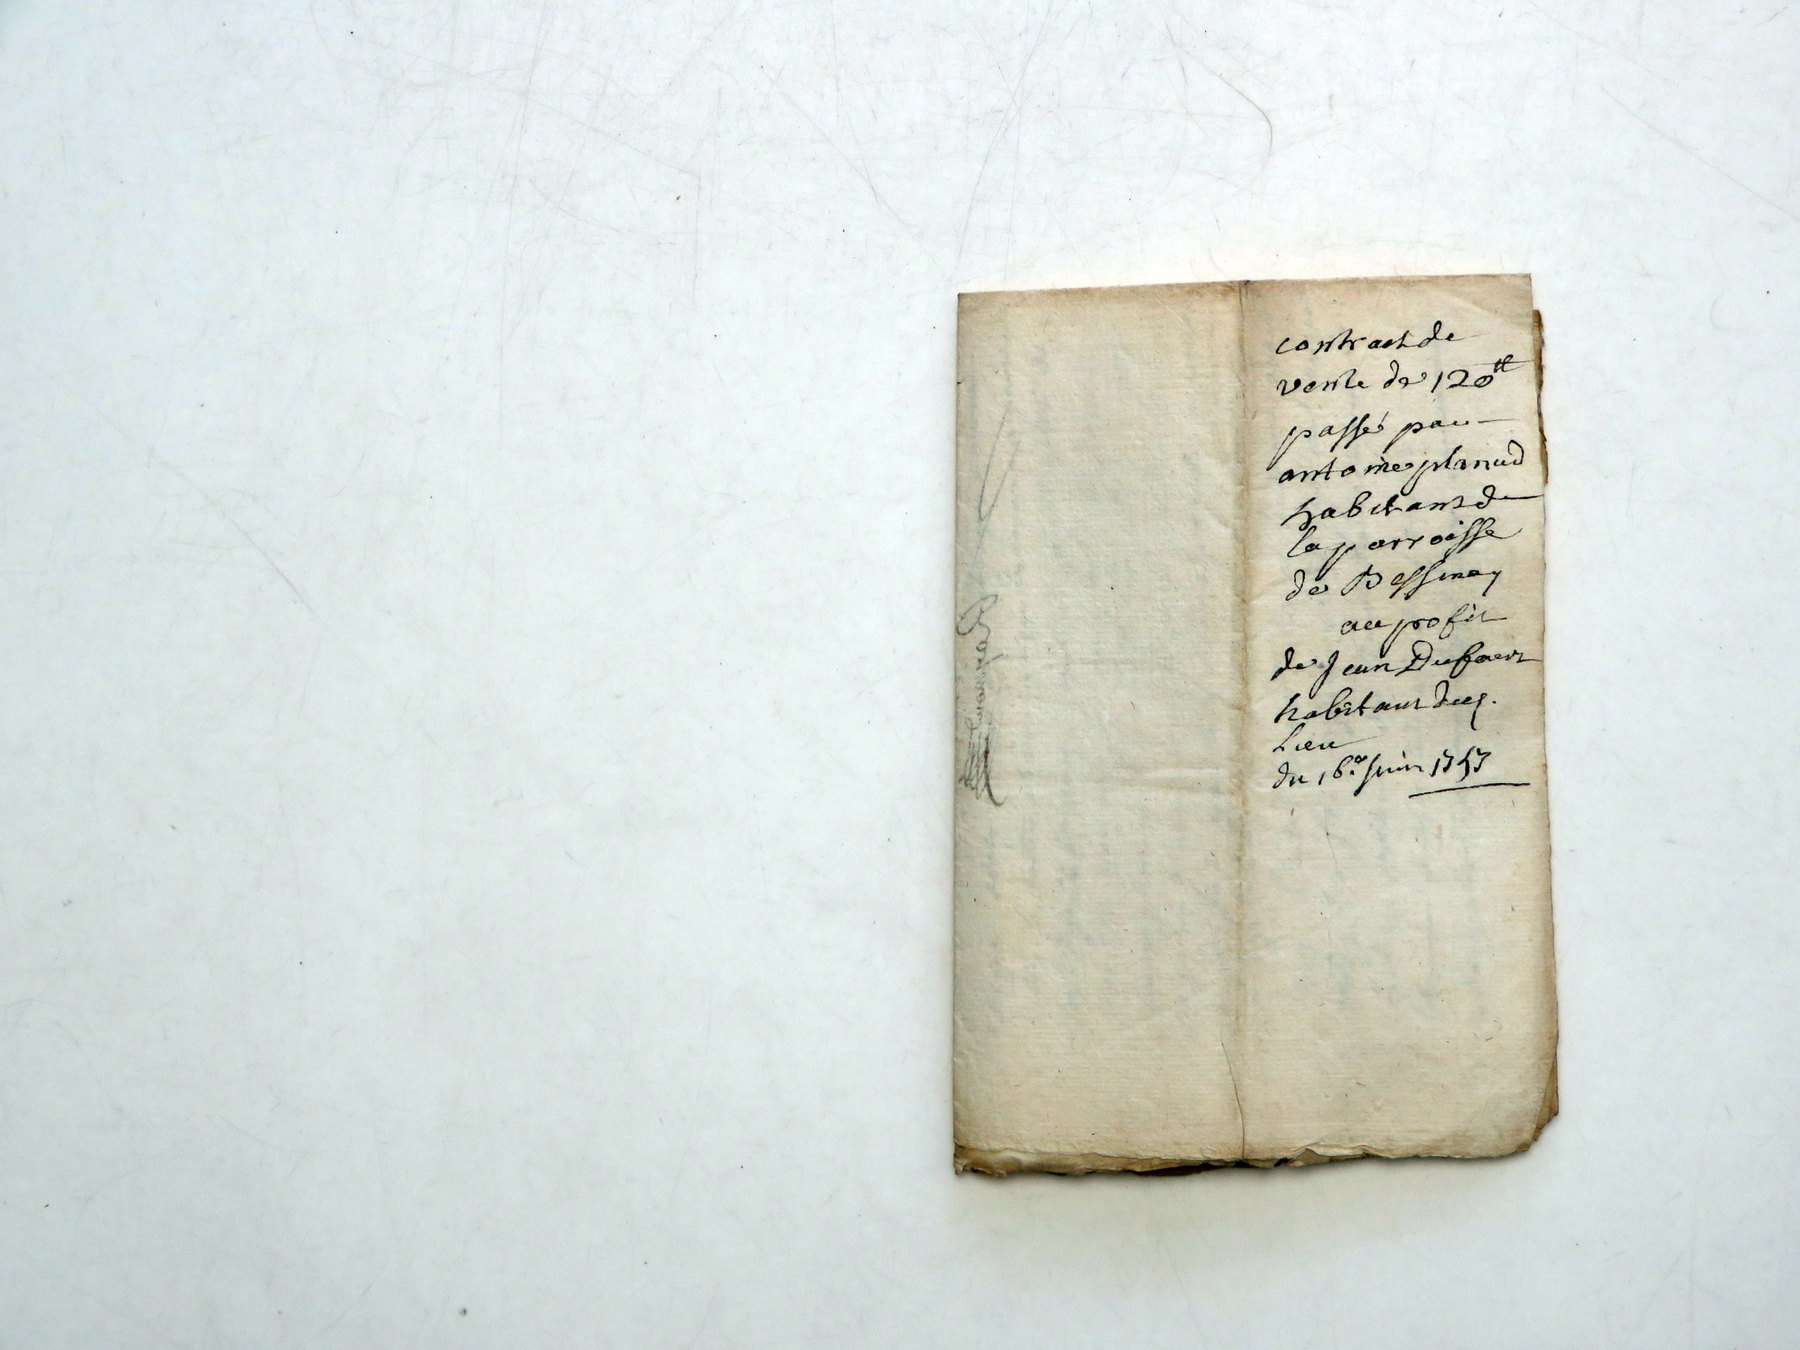 contract de
vente de 120ᵗᵗ
passé par
antoine planud
habitant de
la parroisse
de Bessenay
au profit
de Jean Dufour
habitant dud.
Lieu
du 16.e Juin 1757